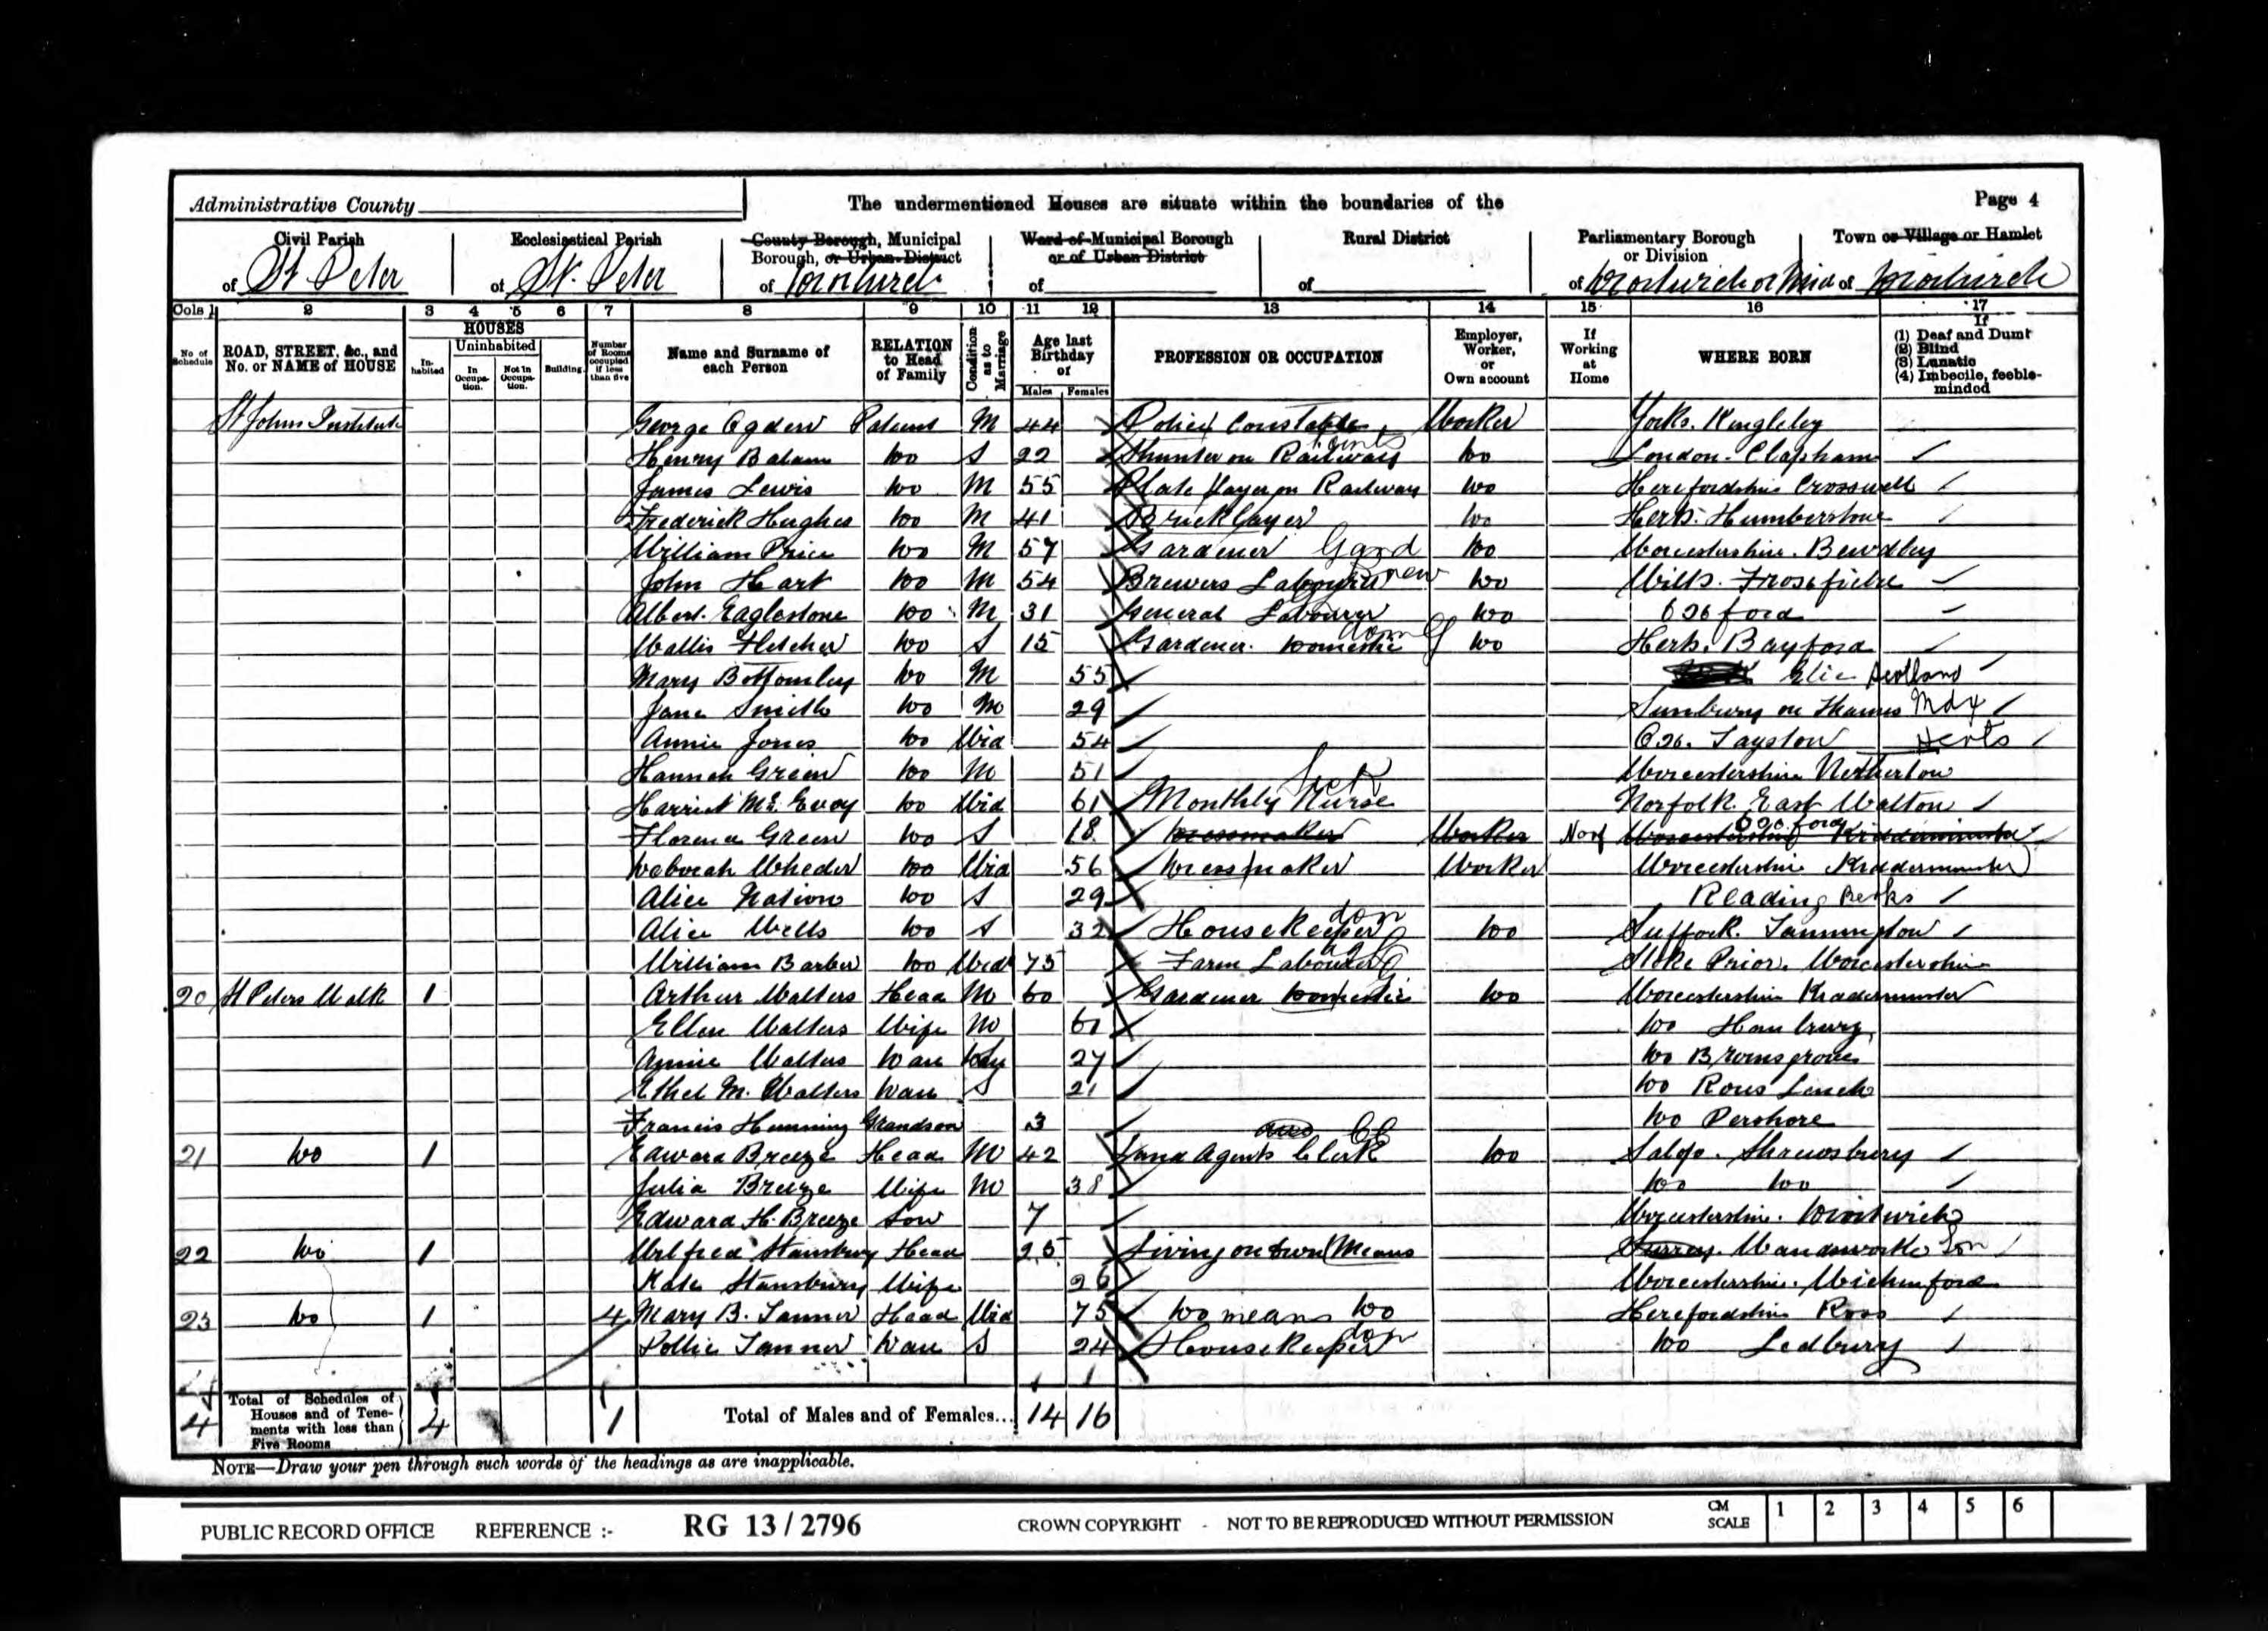 Administrative County
The undermentioned Houses are situate within the boundaries of the
Page 4
Civil Parish of St. Peter
Ecclesiastical Parish of St. Peter
County Borough, Municipal Borough, or Urban District of Droitwich
Ward of Municipal Borough or of Urban District of
Rural District of
Parliamentary Borough or Division of Droitwich or Mid
Town or Village or Hamlet of Droitwich
Cols 1 2 3 4 5 6 7 8 9 10 11 12 13 14 15 16 17
No of Schedule
ROAD, STREET, &c., and No. or NAME of HOUSE
HOUSES
Inhabited
Uninhabited
In Occupation.
Not in Occupation.
Building.
Number of Rooms occupied if less than five
Name and Surname of each Person
RELATION to Head of Family
Condition as to Marriage
Age last Birthday of
Males Females
PROFESSION OR OCCUPATION
Employer, Worker, or Own account
If Working at Home
WHERE BORN
If
(1) Deaf and Dumb
(2) Blind
(3) Lunatic
(4) Imbecile, feeble-minded
St Johns Institute George Ogden Patient M 44 Police Constable Worker Yorks.
Henry Balaam Do S 22 Shunter on Railway Do London. Clapham
James Lewis Do M 55 Plate layer on Railway Do Herefordshire
Frederick Hughes Do M 41 Bricklayer Do Humberstone
William Price Do M 57 Gardener Gard Do Worcestershire. Bewdley
John Hart Do M 54 Brewers Labourer Brew Do Wilts. Froxfield
Albert Eaglestone Do M 31 General Labourer Do Oxford
Wallis Fletcher Do S 15 Gardener. Domestic Dom G Do Herts. Bayford
Mary Bottomley Do M 55 Elie Scotland
Jane Smith Do M 29 Sunbury on Thames Mdx
Annie Jones Do Wid 54 Herts
Hannah Green Do M 51 Worcestershire Netherton
Harriet McEvoy Do Wid 61 Monthly Nurse Sick Norfolk. East Walton
Florence Green Do S 18 Dressmaker Worker Oxford Worcestershire Kidderminster
Deborah Wheeler Do Wid 56 Dressmaker Worker Worcestershire Kidderminster
Alice Nation Do S 29 Reading Berks
Alice Wells Do S 32 Housekeeper dom Do Suffolk. Tannington
William Barber Do Wid 75 Farm Labourer ag Stoke Prior. Worcestershire
20 St Peters Walk 1 Arthur Walters Head M 60 Gardener Domestic Do Worcestershire Kidderminster
Ellen Walters Wife M 60 Do Hanbury
Annie Walters Dau 27 Do Bromsgrove
Ethel M. Walters Dau S 21 Do Rous Lench
Francis Hemming Grandson 3 Do Pershore
21 Do 1 Edward Breeze Head M 42 Land Agents Clerk Do Salop. Shrewsbury
Julia Breeze Wife M 38 Do Do
Edward H. Breeze Son 7 Worcestershire. Droitwich
22 Do 1 Wilfred Stansbury Head 25 Living on own Means Surrey. Wandsworth Lon
Kate Stansbury Wife 26 Worcestershire. Wichenford
23 Do 1 4 Mary B. Tanner Head Wid 75 Do means Do Herefordshire Ross
Pollie Tanner Dau S 24 Housekeeper dom Do Ledbury
4 Total of Schedules of Houses and of Tenements with less than Five Rooms 4 1 Total of Males and of Females... 14 16
NOTE—Draw your pen through such words of the headings as are inapplicable.
PUBLIC RECORD OFFICE REFERENCE :- RG 13/2796 CROWN COPYRIGHT - NOT TO BE REPRODUCED WITHOUT PERMISSION CM SCALE 1 2 3 4 5 6